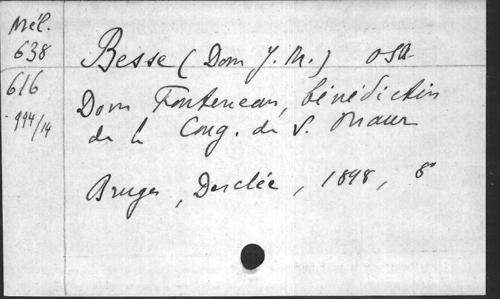 Mél.
638
616
994/14
Besse (Dom J. M.) OSB
Dom Fonteneau, bénédictin
de la Cong. de S. Maur
Bruges, Desclée, 1898, 8°